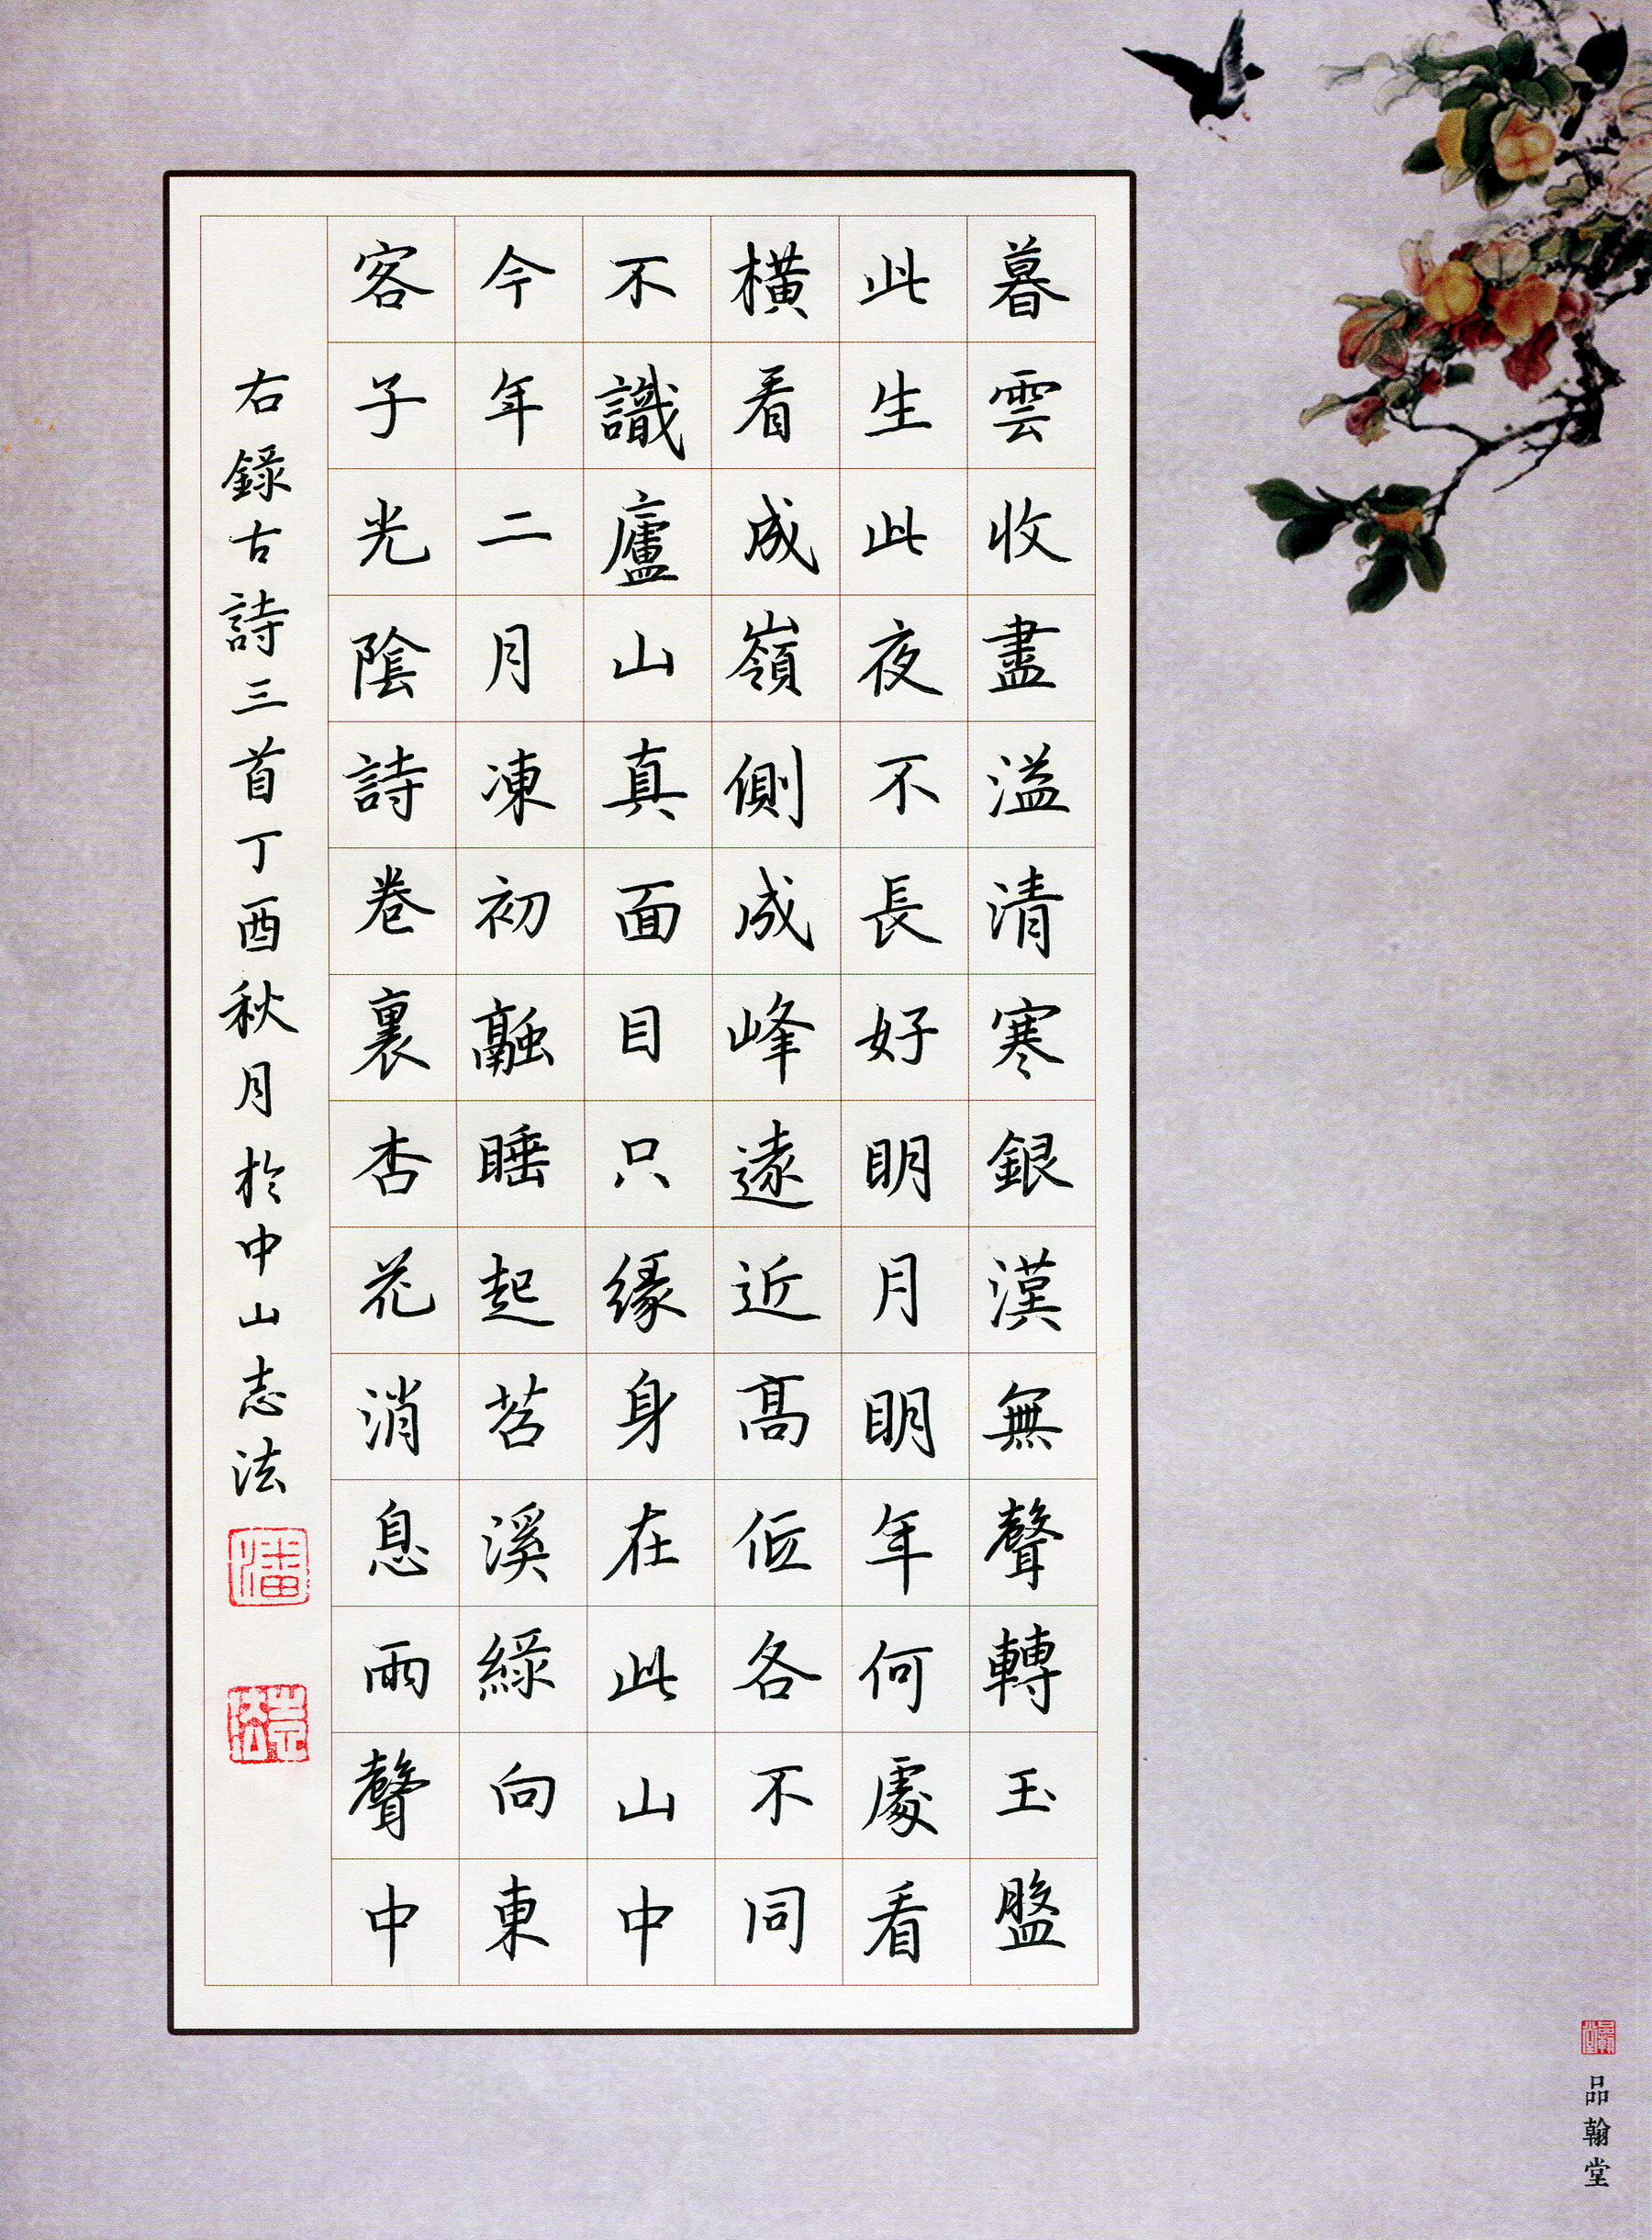 暮雲收盡溢清寒銀漢無聲轉玉盤
此生此夜不長好明月明年何處看
橫看成嶺側成峰遠近髙低各不同
不識廬山真面目只緣身在此山中
今年二月凍初融睡起苕溪綠向東
客子光陰詩卷裏杏花消息雨聲中
右錄古詩三首丁酉秋月於中山志法
潘
志法
品翰堂
品翰堂